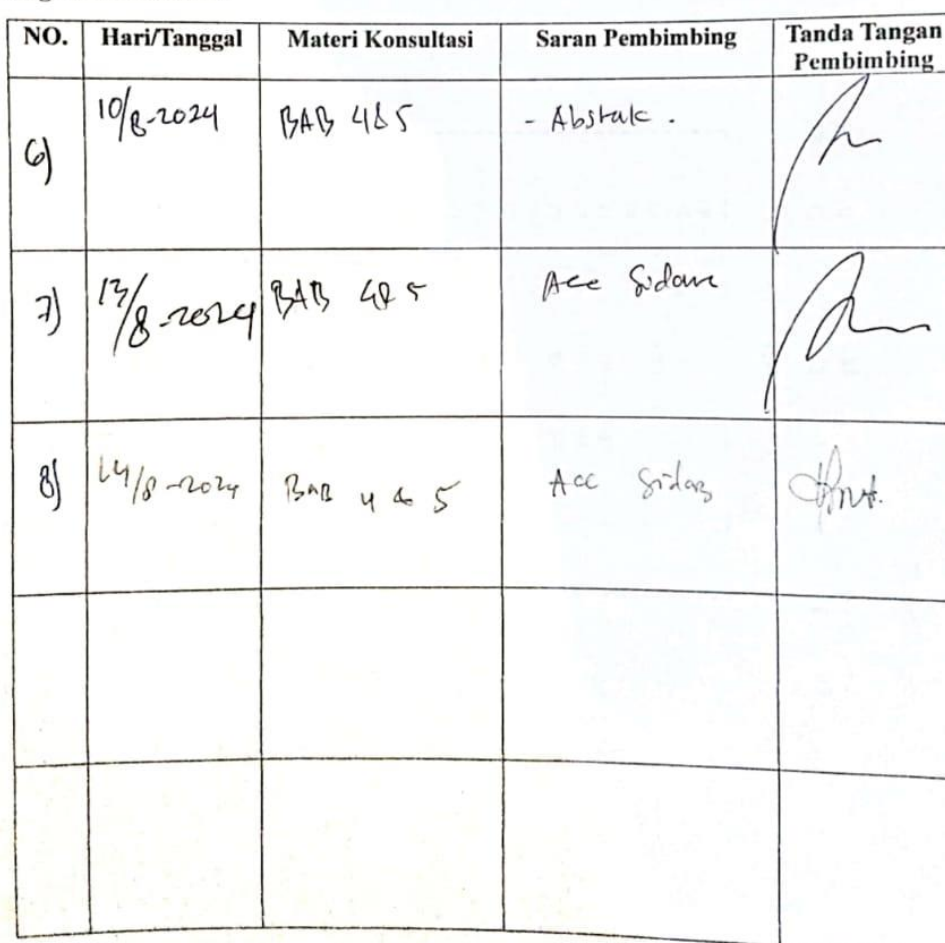 NO. Hari/Tanggal Materi Konsultasi Saran Pembimbing Tanda Tangan Pembimbing
6) 10/8-2024 BAB 4&5 - Abstrak.
7) 13/8-2024 BAB 4&5 Acc Sidang
8) 14/8-2024 BAB 4 & 5 Acc Sidang